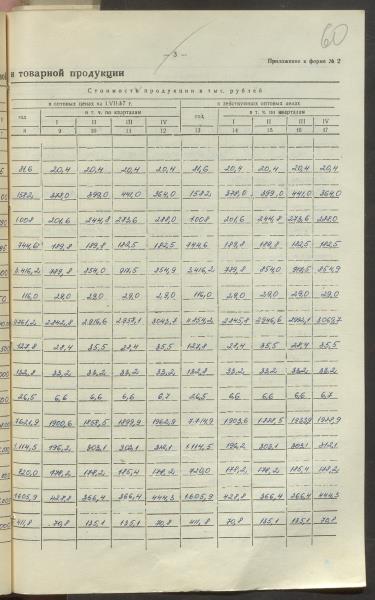 60
— 3 —
Приложение к форме № 2
и товарной продукции
Стоимость продукции в тыс. рублей
в оптовых ценах на 1.VII.67 г.
в действующих оптовых ценах
год
в т. ч. по кварталам
год
в т. ч. по кварталам
I II III IV I II III IV
8 9 10 11 12 13 14 15 16 17
81,6 20,4 20,4 20,4 20,4 81,6 20,4 20,4 20,4 20,4
1582, 378,0 399,0 441,0 364,0 1582, 378,0 399,0 441,0 364,0
1008 201,6 244,8 273,6 288,0 1008 201,6 244,8 273,6 288,0
744,6 189,8 189,8 182,5 182,5 744,6 189,8 189,8 182,5 182,5
3416,2 789,8 854,0 854,9 3416,2 789,8 854,0 854,9
116,0 29,0 29,0 29,0 29,0 116,0 29,0 29,0 29,0 29,0
2842,8 2845,8
127,8 28,4 35,5 28,4 35,5 127,8 28,4 35,5 28,4 35,5
132,8 33,2 33,2 33,2 33,2 132,8 33,2 33,2 33,2 33,2
26,5 6,6 6,6 6,6 6,7 26,5 6,6 6,6 6,6 6,7
7621,9 1900,6 1858,5 1899,9 1962,9 7714,9 1903,6
1114,5 196,2 303,1 303,1 312,1 1114,5 196,2 303,1 303,1 312,1
720,0 178,2 178,2 185,4 178,2 720,0 178,2 178,2 185,4 178,2
1605,9 428,8 366,4 366,4 444,3 1605,9 428,8 366,4 366,4 444,3
411,8 70,8 135,1 135,1 70,8 411,8 70,8 135,1 135,1 70,8